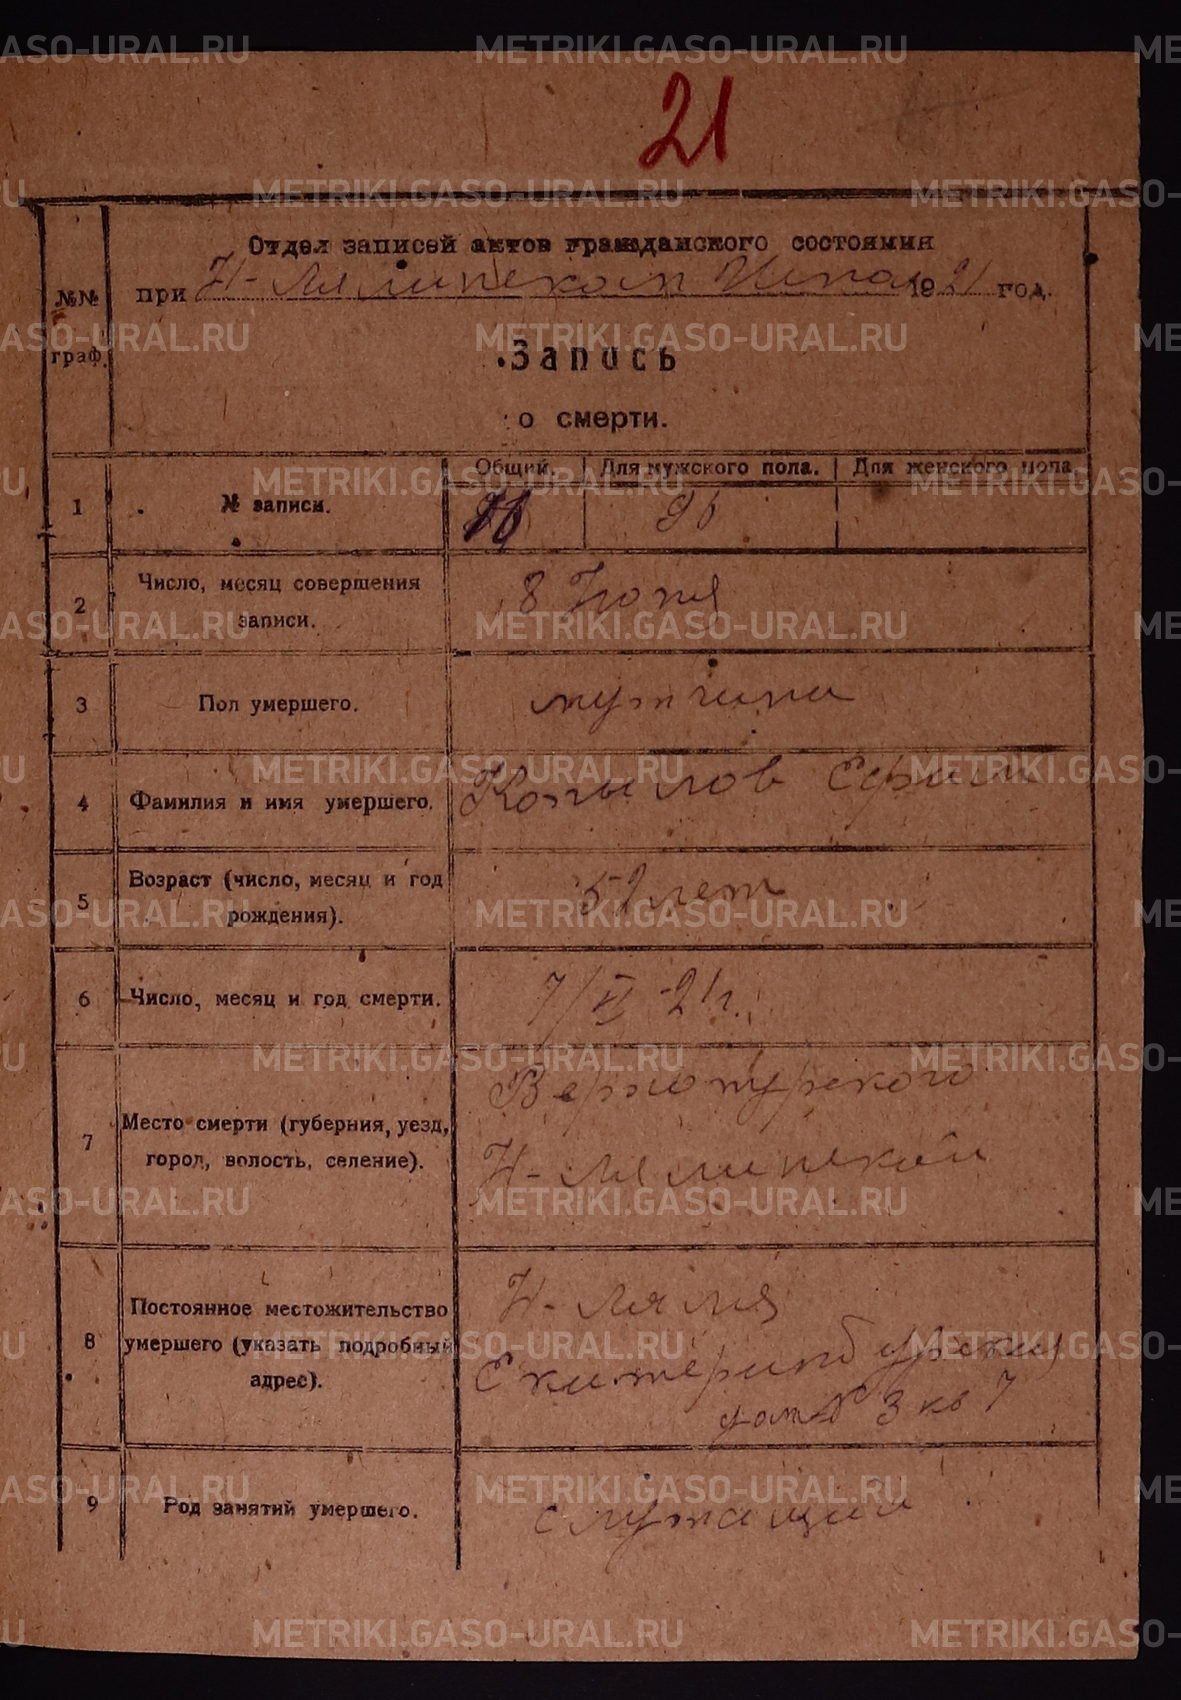 21
Отдел записей актов гражданского состояния
при Н-Лялинском Испол 1921 год.
№№
граф.
Запись
о смерти.
Общий. Для мужского пола. Для женского пола.
1 № записи. 96
2 Число, месяц совершения
записи. 8 Июня
3 Пол умершего. мужчина
4 Фамилия и имя умершего. Копылов Ефим
5 Возраст (число, месяц и год
рождения). 52 лет
6 Число, месяц и год смерти. 7/VI-21 г.
7 Место смерти (губерния, уезд,
город, волость, селение). Верхотурского
Н-Лялинской
8 Постоянное местожительство
умершего (указать подробный
адрес). Н-Ляля
Екатеринбургская
дом № 3 кв 7
9 Род занятий умершего. служащий
METRIKI.GASO-URAL.RU